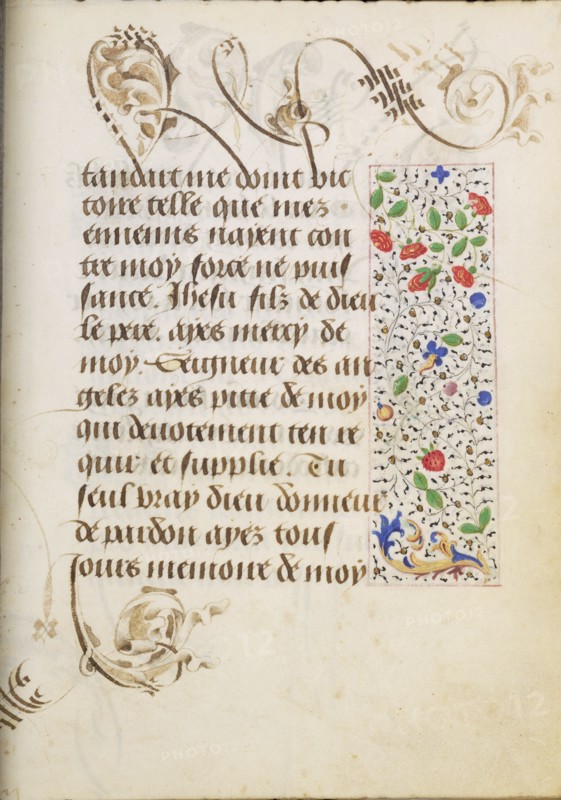 tandart me doint vic
toire telle que mes
ennemis nayent con
tre moy force ne puis
sance. Jhesu filz de dieu
le pere. ayes mercy de
moy. Seigneur des an
gelez ayes pitie de moy
qui deuotement ten re
quir et supplie. Tu
seul vray dieu donneur
de pardon ayez tous
jours memoire de moy